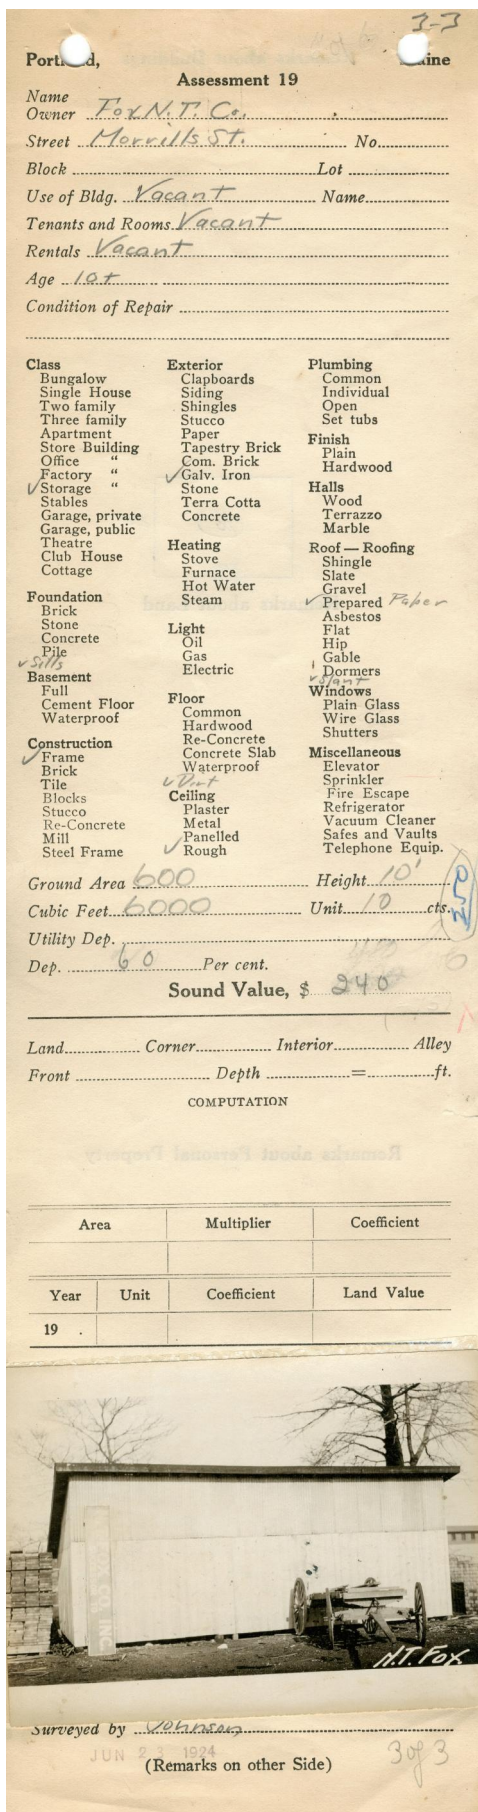 3-3
Portland, Maine
Assessment 19
Name
Owner Fox N. T. Co.
Street Morrills St. No.
Block Lot
Use of Bldg. Vacant Name
Tenants and Rooms Vacant
Rentals Vacant
Age 10+
Condition of Repair
Class
Bungalow
Single House
Two family
Three family
Apartment
Store Building
Office "
Factory "
✓ Storage "
Stables
Garage, private
Garage, public
Theatre
Club House
Cottage
Foundation
Brick
Stone
Concrete
Pile
✓ Sills
Basement
Full
Cement Floor
Waterproof
Construction
✓ Frame
Brick
Tile
Blocks
Stucco
Re-Concrete
Mill
Steel Frame
Exterior
Clapboards
Siding
Shingles
Stucco
Paper
Tapestry Brick
Com. Brick
✓ Galv. Iron
Stone
Terra Cotta
Concrete
Heating
Stove
Furnace
Hot Water
Steam
Light
Oil
Gas
Electric
Floor
Common
Hardwood
Re-Concrete
Concrete Slab
Waterproof
✓ Dirt
Ceiling
Plaster
Metal
Panelled
✓ Rough
Plumbing
Common
Individual
Open
Set tubs
Finish
Plain
Hardwood
Halls
Wood
Terrazzo
Marble
Roof — Roofing
Shingle
Slate
Gravel
✓ Prepared Paper
Asbestos
Flat
Hip
Gable
Dormers
✓ Slant
Windows
Plain Glass
Wire Glass
Shutters
Miscellaneous
Elevator
Sprinkler
Fire Escape
Refrigerator
Vacuum Cleaner
Safes and Vaults
Telephone Equip.
Ground Area 600 Height 10'
Cubic Feet 6000 Unit 10 cts.
250
Utility Dep.
Dep. 60 Per cent.
Sound Value, $ 240
Land Corner Interior Alley
Front Depth = ft.
COMPUTATION
Area Multiplier Coefficient
Year Unit Coefficient Land Value
19 .
CO. INC.
N.T. Fox
Surveyed by Johnson
JUN 23 1924
3 of 3
(Remarks on other Side)